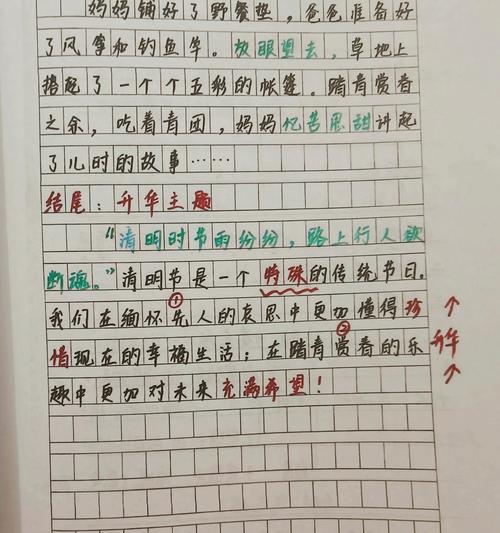 妈妈铺好了野餐垫，爸爸准备好
了风筝和钓鱼竿。放眼望去，草地上
搭起了一个个五彩的帐篷。踏青赏春
之余，吃着青团，妈妈忆苦思甜讲起
了儿时的故事……
结尾：升华主题
“清明时节雨纷纷，路上行人欲
断魂。”清明节是一个特殊的传统节日。
①
我们在缅怀先人的哀思中更加懂得珍
②
惜现在的幸福生活；在踏青赏春的乐
趣中更加对未来充满希望！
↑
升华
↑